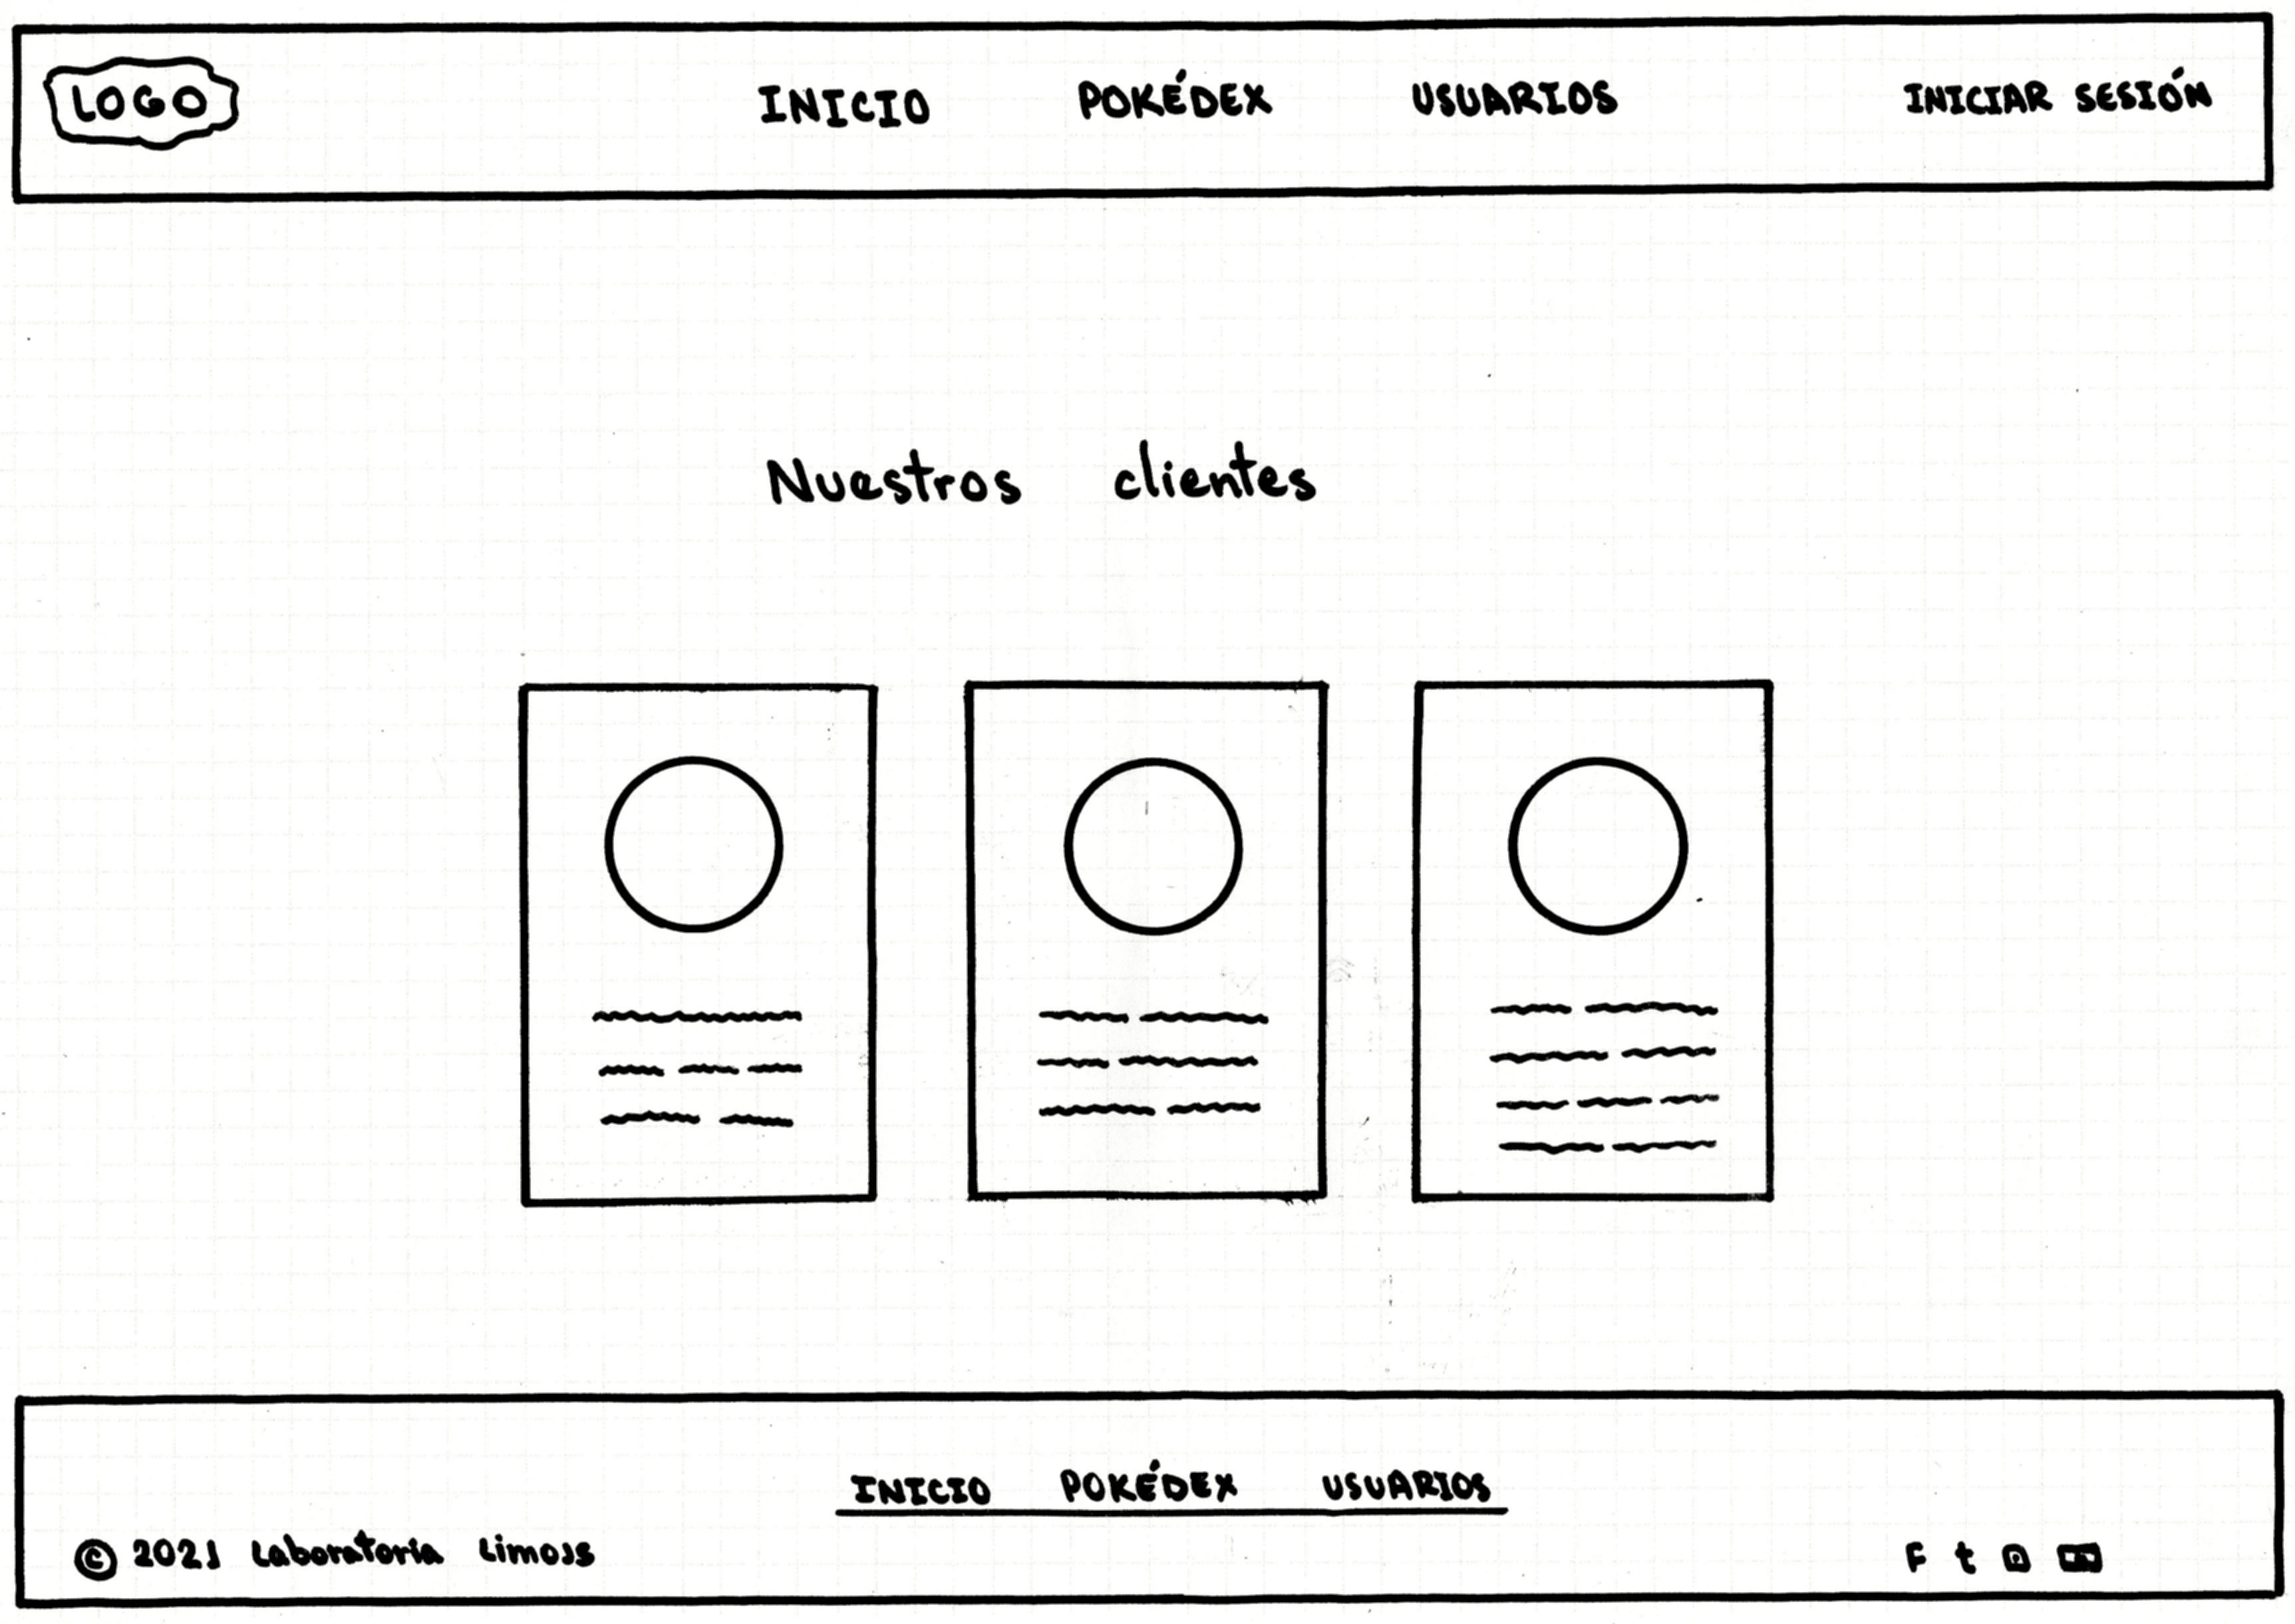 LOGO INICIO POKÉDEX USUARIOS INICIAR SESIÓN
Nuestros clientes
INICIO POKÉDEX USUARIOS
© 2021 Laboratoria Limojs
F t